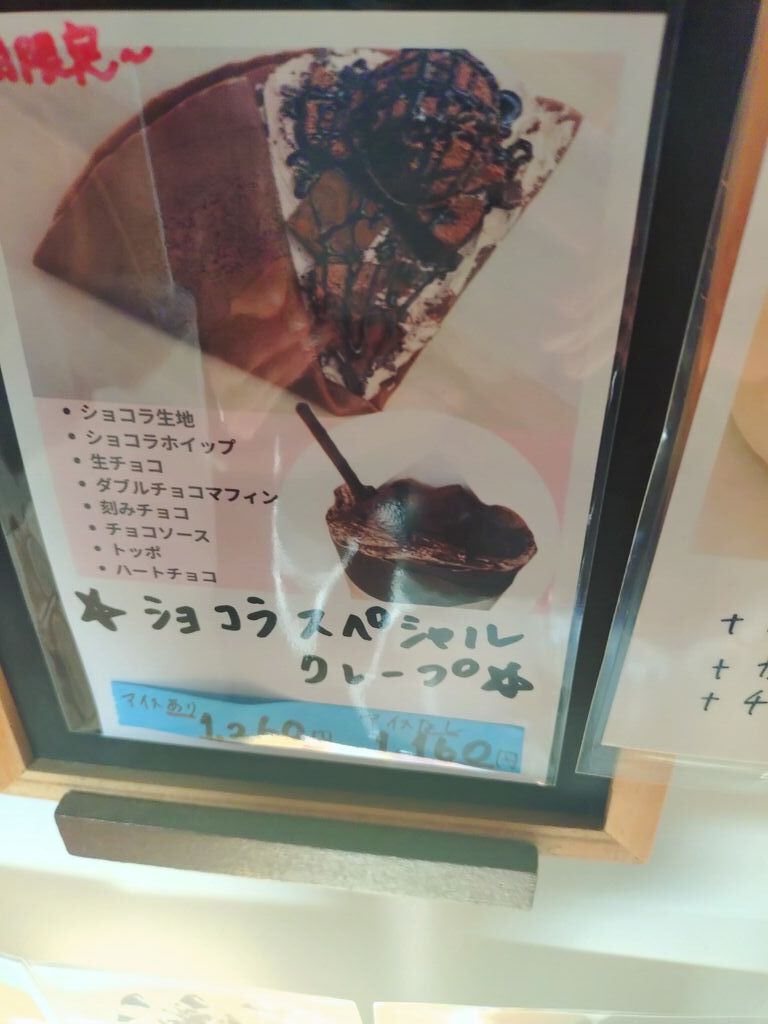 限定～
• ショコラ生地
• ショコラホイップ
• 生チョコ
• ダブルチョコマフィン
• 刻みチョコ
• チョコソース
• トッポ
• ハートチョコ
☆ ショコラスペシャル
クレープ☆
アイスあり 1,260円 アイスなし 1,160円
+
+
+